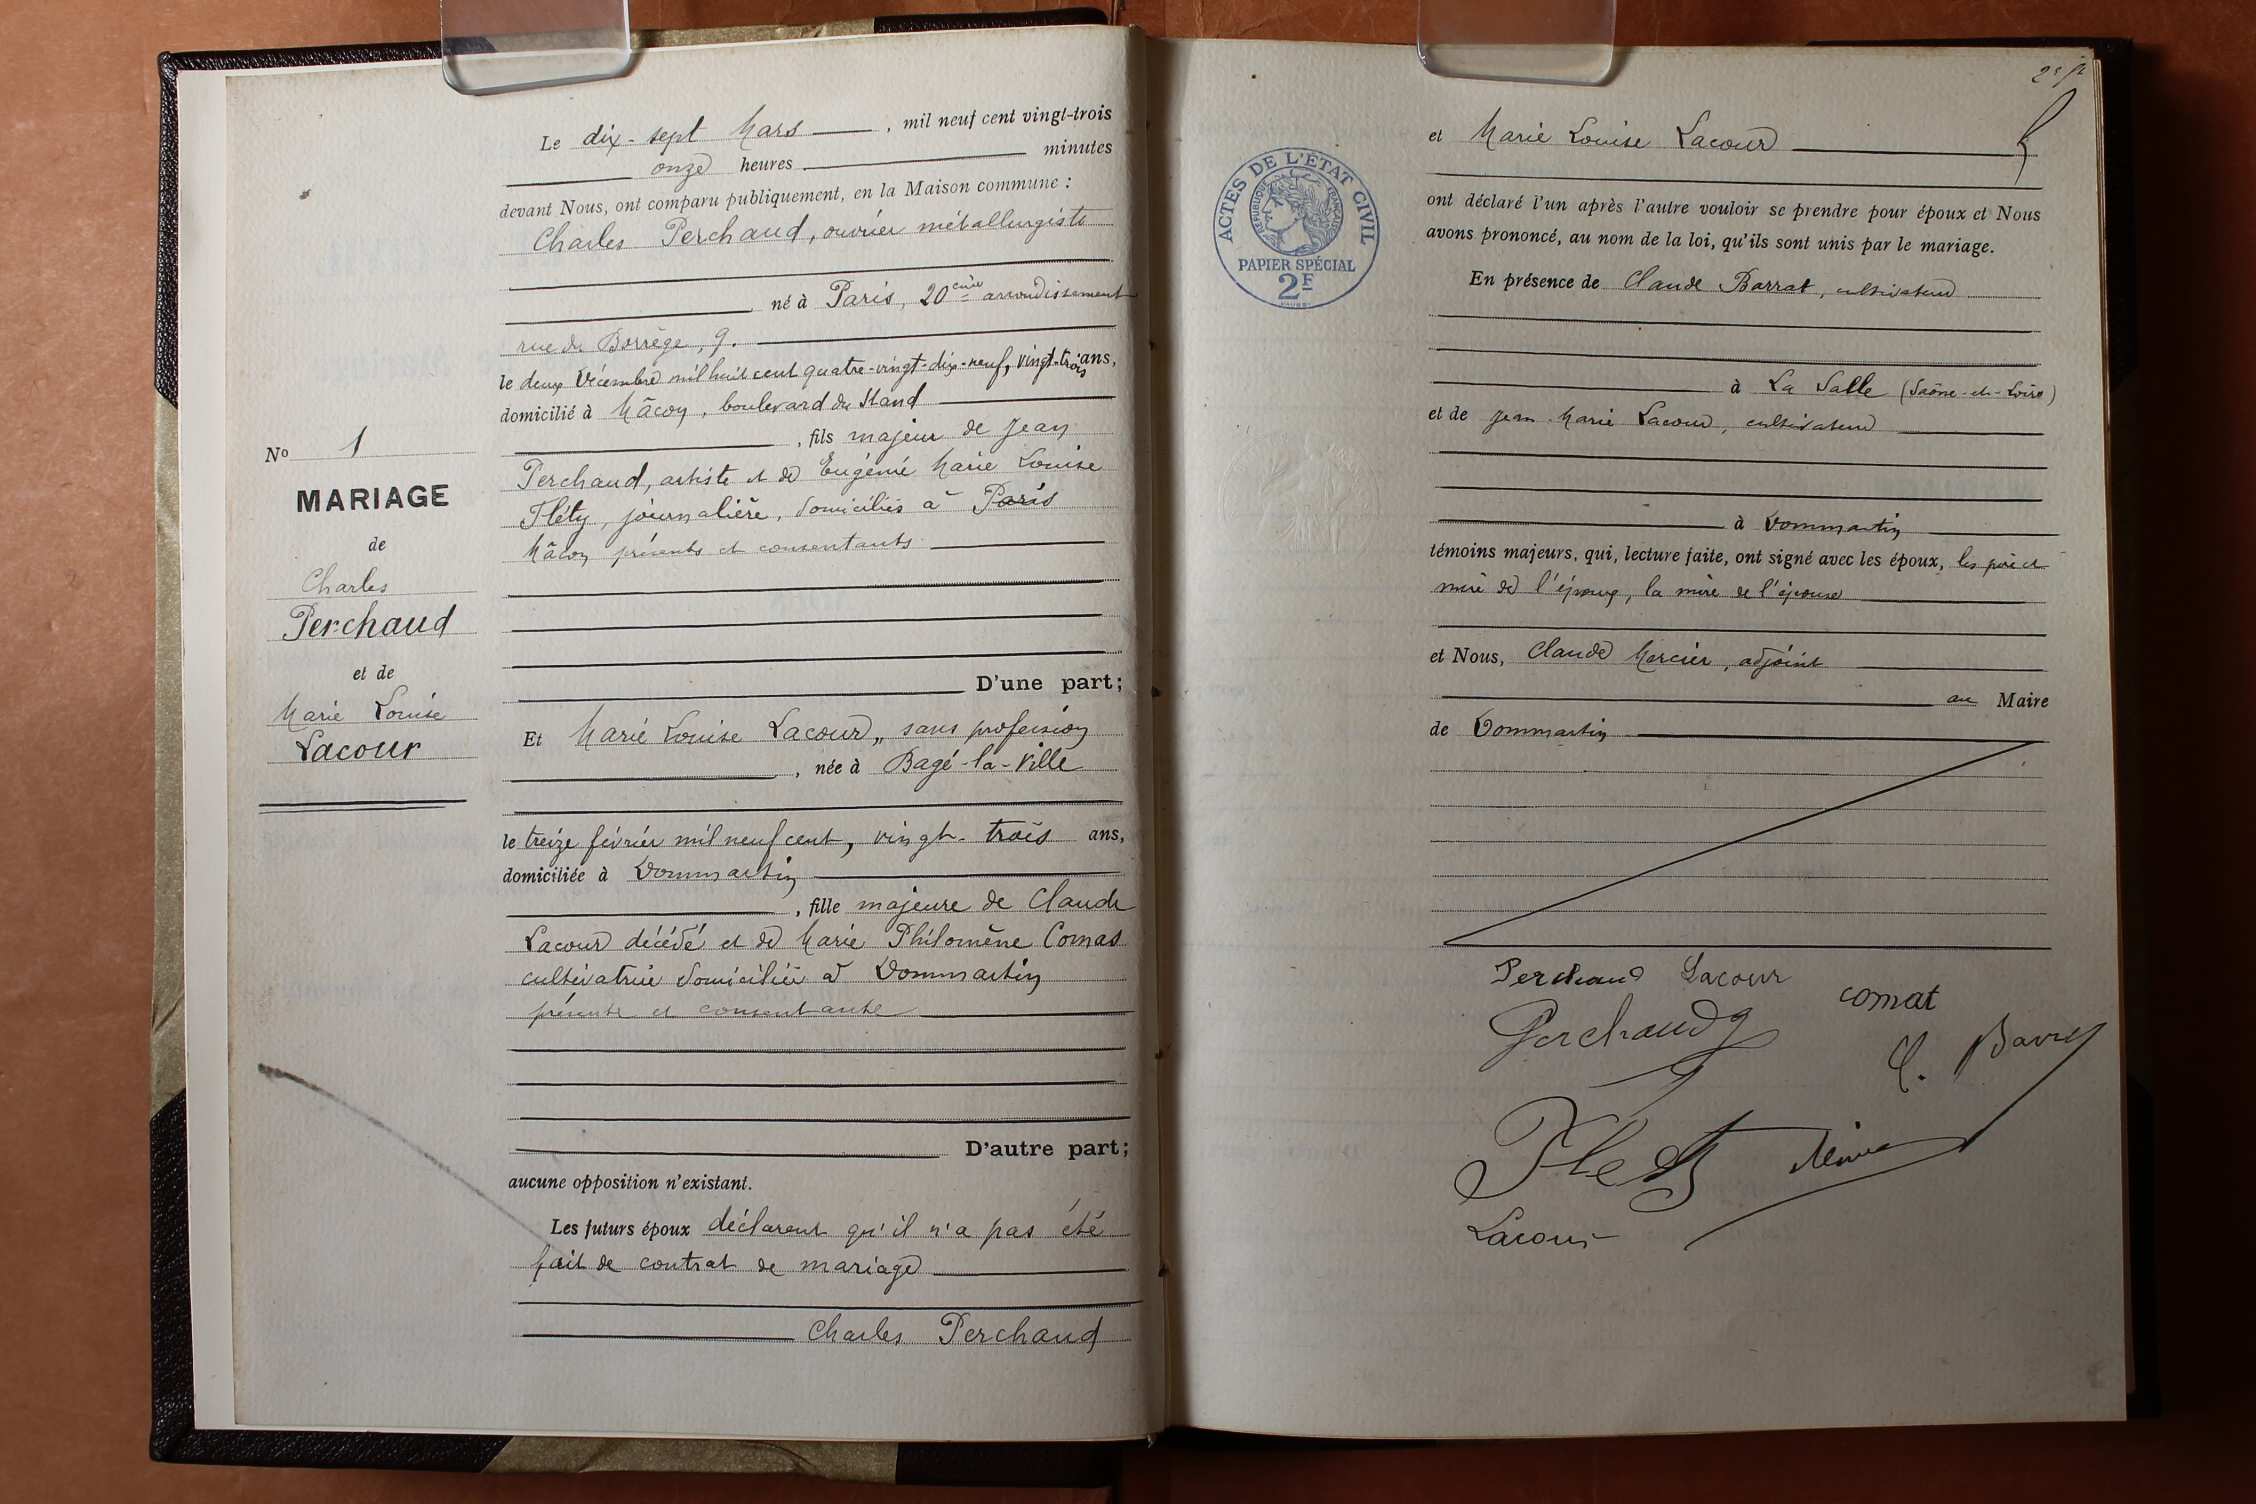 Le dix-sept Mars, mil neuf cent vingt-trois
onze heures minutes
devant Nous, ont comparu publiquement, en la Maison commune :
Charles Perchaud, ouvrier métallurgiste
né à Paris, 20ème arrondissement
rue du Borrégo, 9.
le deux Décembre mil huit cent quatre-vingt-dix-neuf, vingt-trois ans,
domicilié à Mâcon, boulevard du Stand
, fils majeur de Jean
Perchaud, artiste et de Eugénie Marie Louise
Fléty, journalière, domiciliés à Paris
Mâcon présents et consentants
D'une part;
Et Marie Louise Lacour, sans profession
, née à Bagé-la-Ville
le treize février mil neuf cent, vingt-trois ans,
domiciliée à Dommartin
, fille majeure de Claude
Lacour décédé et de Marie Philomène Comas
cultivatrice domiciliée à Dommartin
présente et consentante
D'autre part;
aucune opposition n'existant.
Les futurs époux déclarent qu'il n'a pas été
fait de contrat de mariage
Charles Perchaud
No 1
MARIAGE
de
Charles
Perchaud
et de
Marie Louise
Lacour
et Marie Louise Lacour
ont déclaré l'un après l'autre vouloir se prendre pour époux et Nous
avons prononcé, au nom de la loi, qu'ils sont unis par le mariage.
En présence de Claude Barrat, cultivateur
à La Salle (Saône-et-Loire)
et de Jean Marie Lacour, cultivateur
à Dommartin
témoins majeurs, qui, lecture faite, ont signé avec les époux, les père et
mère de l'époux, la mère de l'épouse
et Nous, Claude Mercier, adjoint
au Maire
de Dommartin
Perchaud Lacour
comat
Perchaud
C. Barrat
Flety
Lacour
ACTES DE L'ETAT CIVIL
REPUBLIQUE FRANÇAISE
PAPIER SPÉCIAL
2F